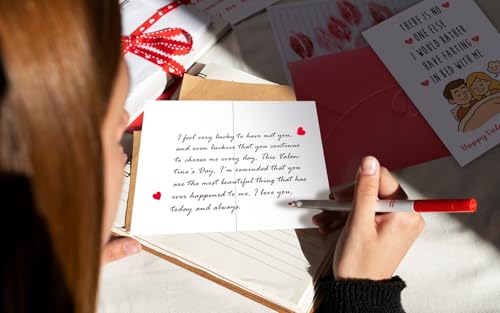 I feel very lucky to have met you,
and even luckier that you continue
to choose me every day. This Valen-
tine's Day, I'm reminded that you
are the most beautiful thing that has
ever happened to me. I love you,
today and always.
THERE IS NO
ONE ELSE
I WOULD RATHER
HAVE FARTING
IN BED WITH ME
Happy Valen